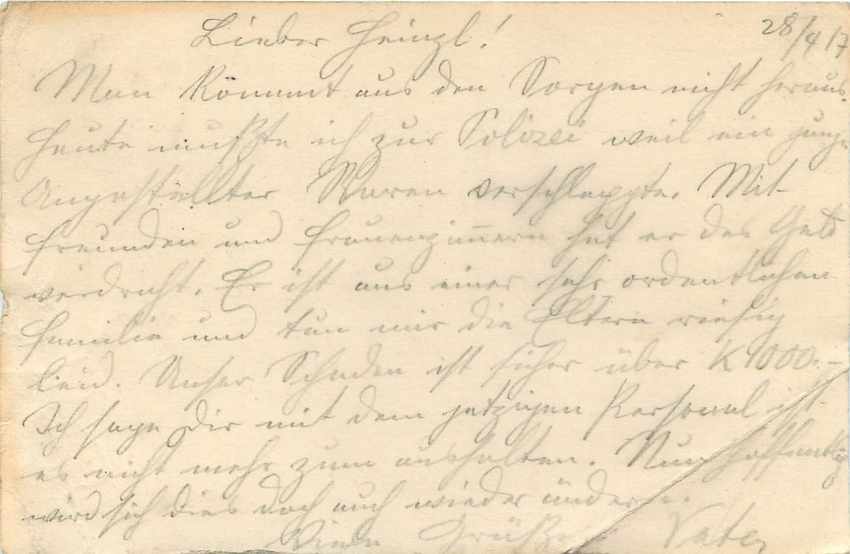 28/4 17
Lieber Heinzl!
Man kommt aus den Sorgen nicht heraus.
Heute mußte ich zur Polizei weil ein junger
Angestellter Waren verschleppte. Mit
Freunden und Frauenzimmern hat er das Geld
verdreht. Er ist aus einer sehr ordentlichen
Familie und tun mir die Eltern riesig
leid. Unser Schaden ist sicher über K 1000.–
Ich sage Dir mit dem jetzigen Personal ist
es nicht mehr zum aushalten. Nun hoffentlich
wird sich dies doch auch wieder ändern.
Viele Grüße Vater